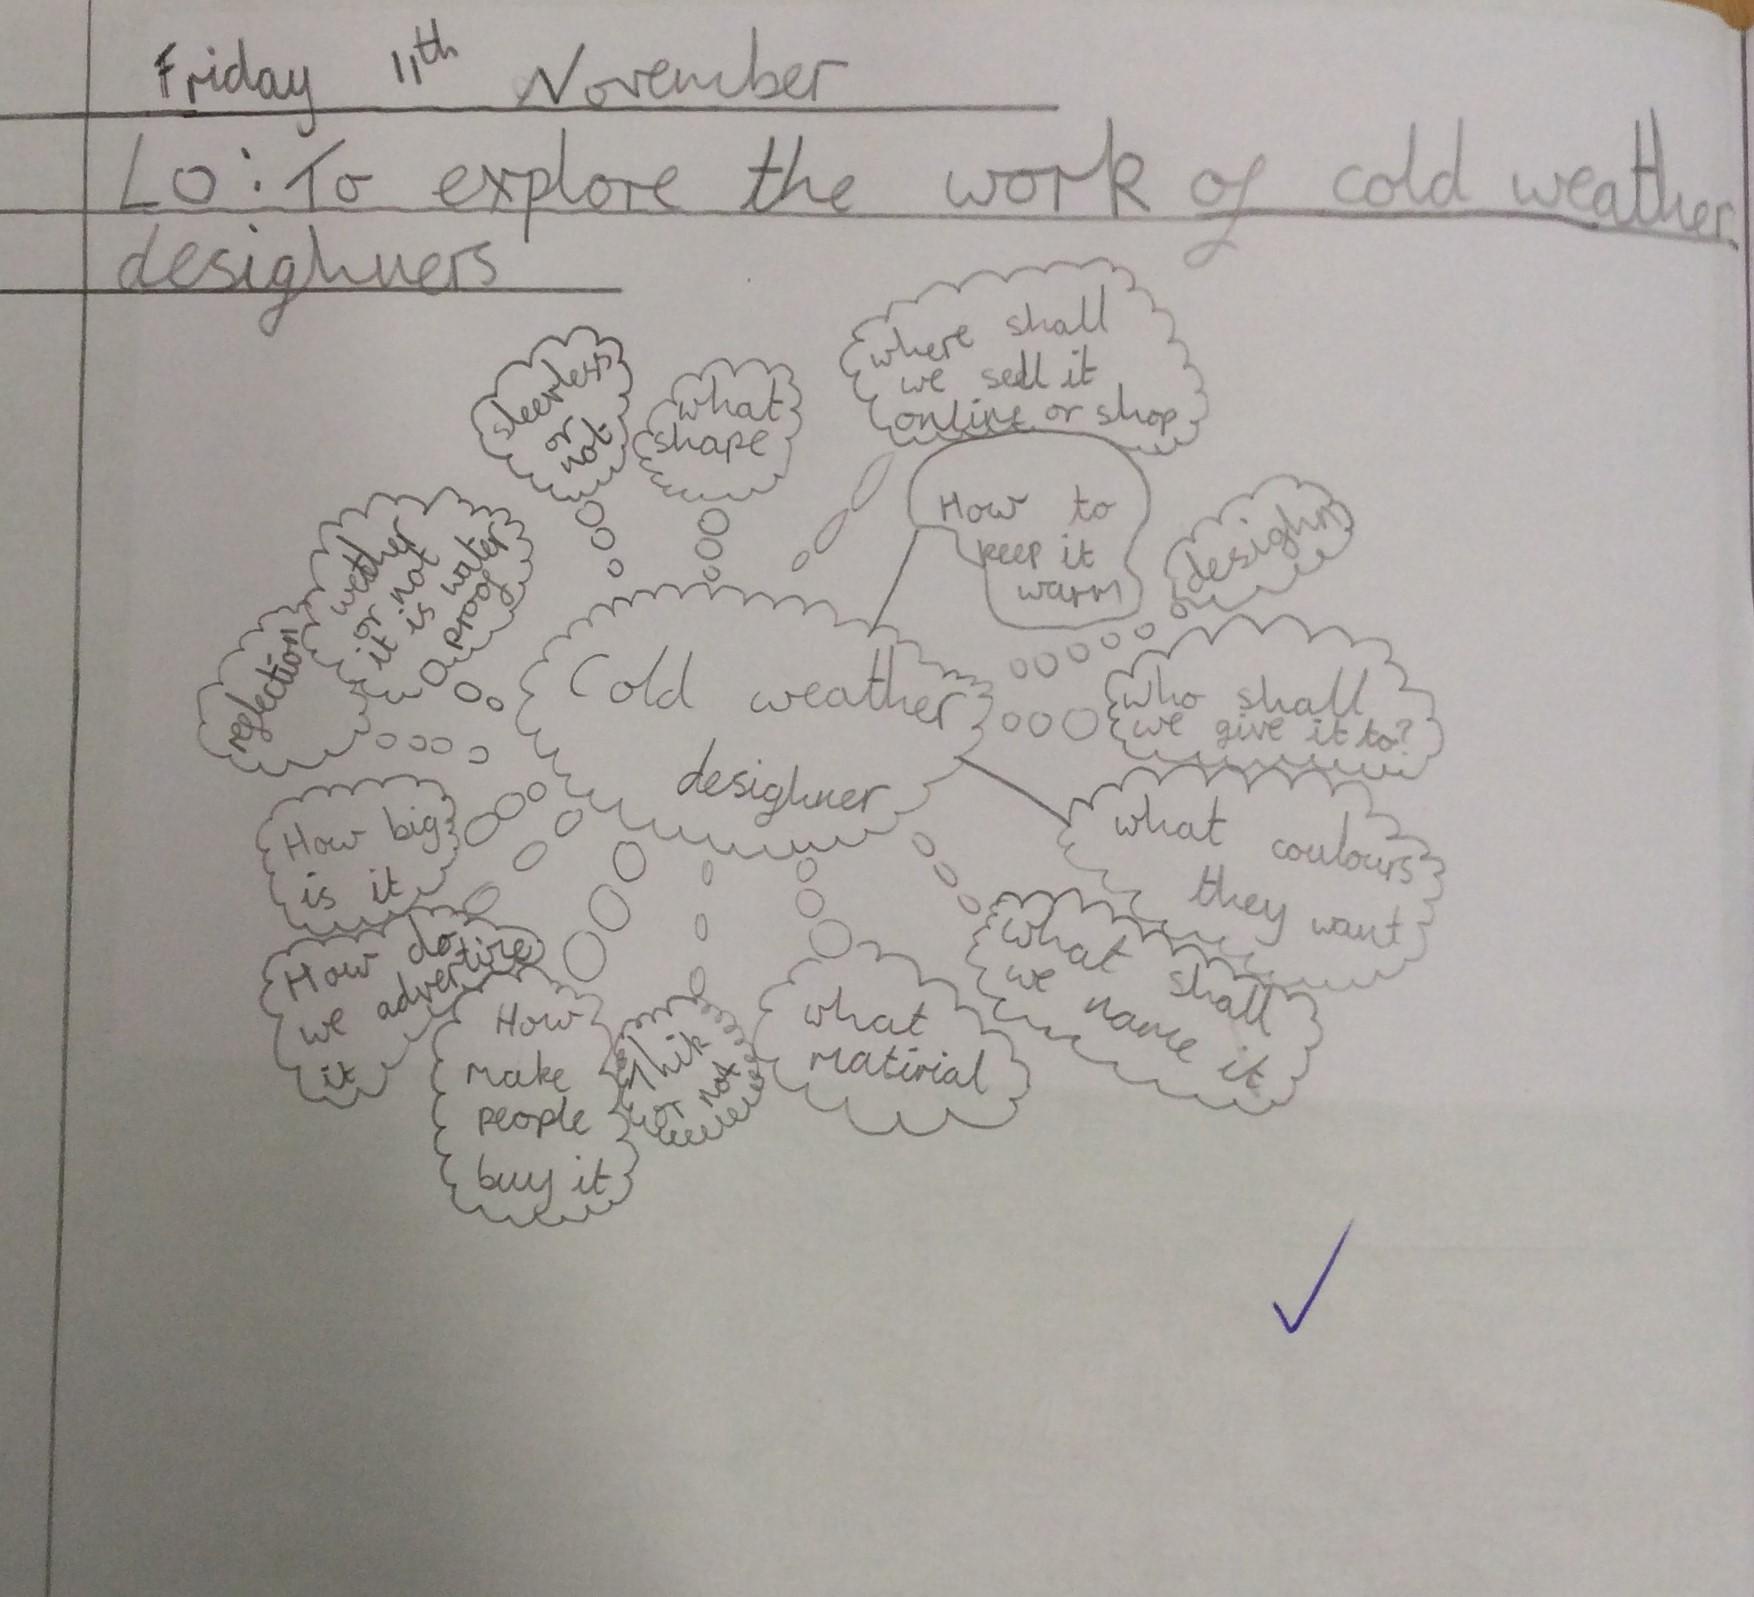 Friday 11th November
LO: To explore the work of cold weather
desighners
where shall
we sell it
online or shop
sleevless
or
not
what
shape
How to
keep it
warm
desighn
weather
or not
it is water
proof
reflection
Cold weather
desighner
who shall
we give it to?
How big
is it
what coulours
they want
How do
we advertire
it
what shall
we name it
How
make
people
buy it
Thik
or not
what
matirial